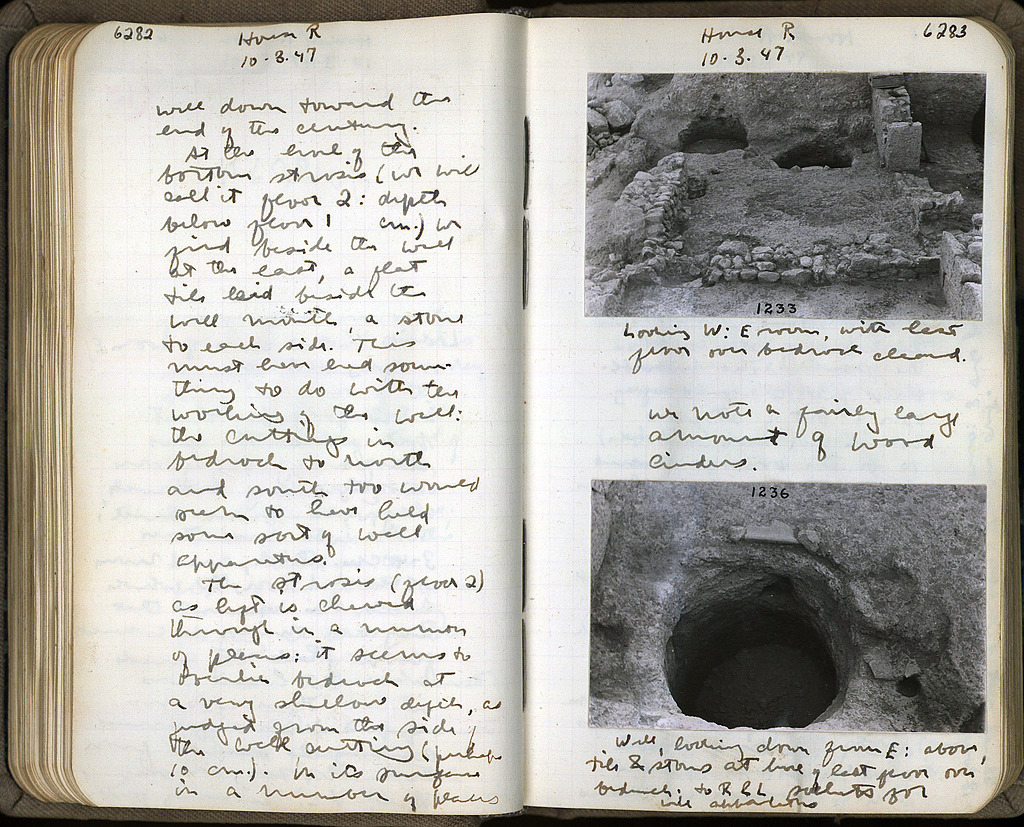 6282
House R
10.3.47
well down toward the
end of the century.
At the level of the
bottom strosis (we will
call it floor 2: depth
below floor 1 cm.) we
find beside the well
at the east, a flat
tile laid beside the
well mouth, a stone
to each side. This
must have had some-
thing to do with the
working of the well:
the cuttings in
bedrock to north
and south too would
seem to have held
some sort of well
apparatus.
The strosis (floor 2)
as left is chewed
through in a number
of places; it seems to
bedrock at
a very shallow depth, as
judged from the side of
the well cutting (perhaps
10 cm.). In its surface
in a number of places
6283
House R
10.3.47
1233
Looking W: E room, with last
floor over bedrock cleaned.
we note a fairly large
amount of wood
cinders.
1236
Well, looking down from E: above,
tile & stones at level of last floor over
bedrock; to R & L sockets for
well apparatus